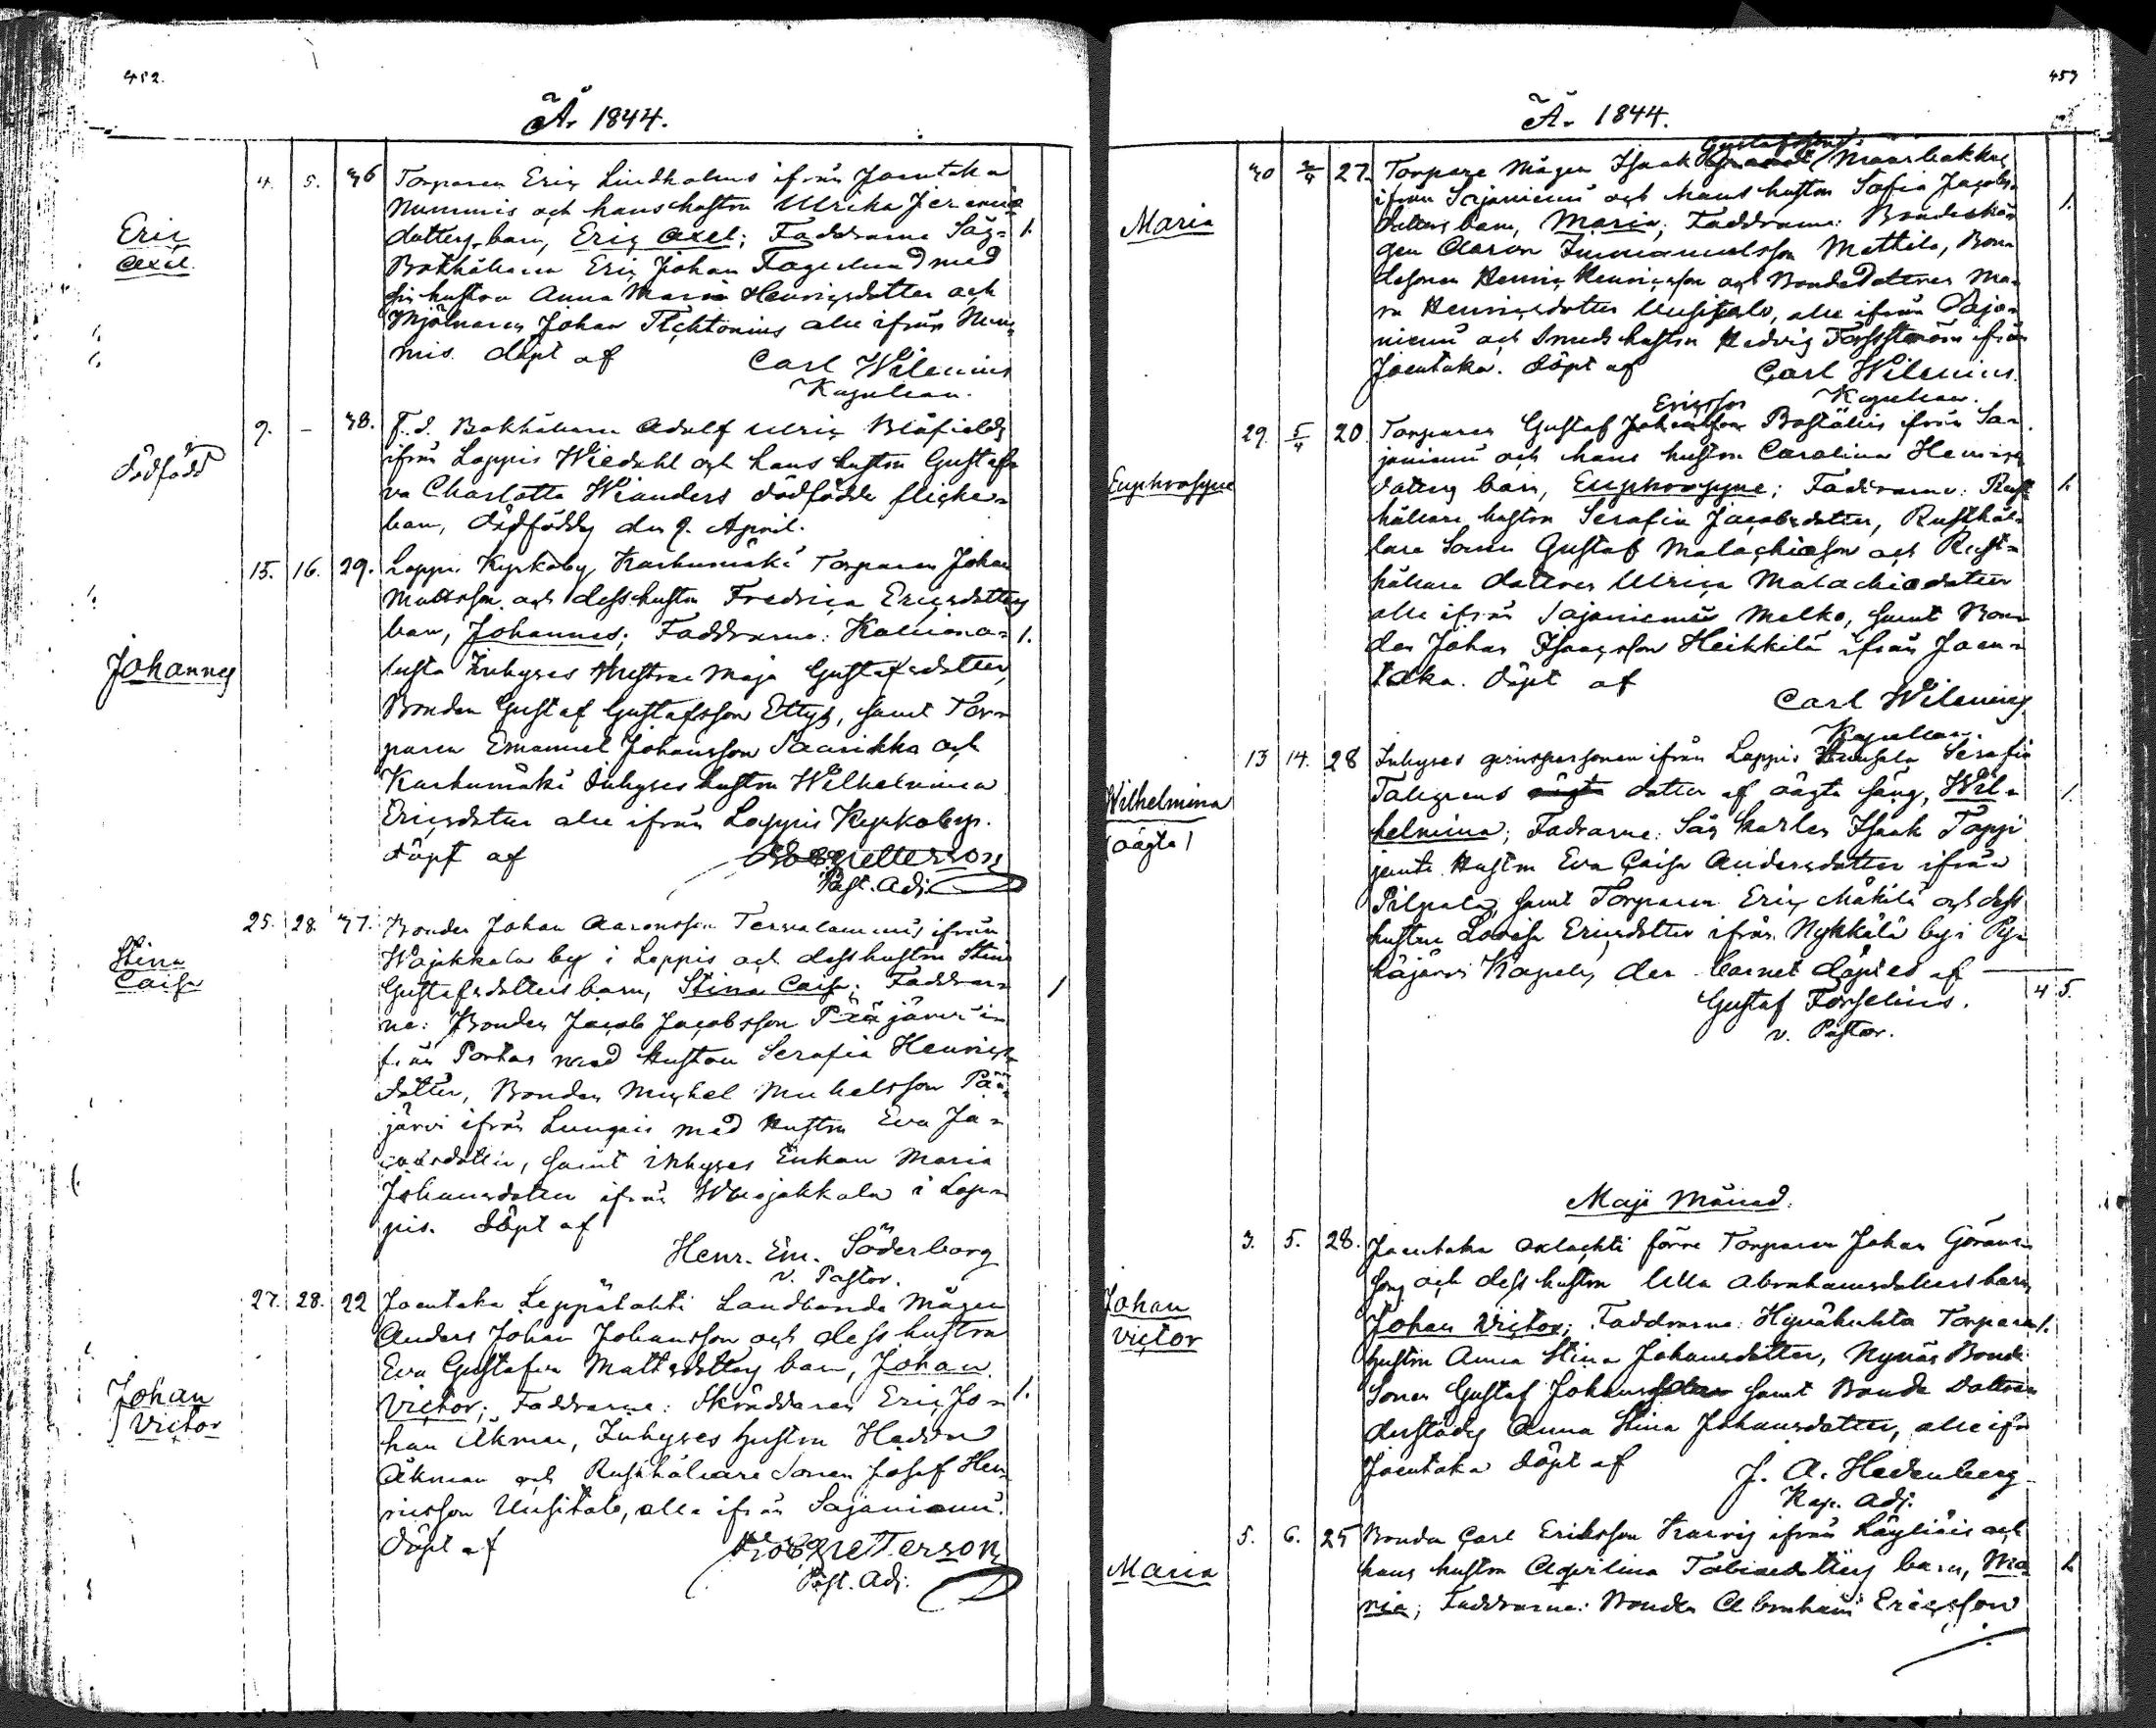 452.
År 1844.
Eric
Axel.
4. 5. 36 Torparen Eric Lindholms ifrån Joentaka
Nummis och hans hustru Ulrika Jeremiæ
dotters barn, Eric Axel; Faddrarne Såg= 1.
Bokhållaren Eric Johan Fagerlund med
sin hustru Anna Maria Henricsdotter och
Mjölnaren Johan Tichtonius alle ifrån Num
mis. döpt af Carl Wilenius
Kapellan.
dödfödd
9. – 38. F. d. Bokhållaren Adolf Ulric Blåfields
ifrån Loppis Wiedahl och hans hustru Gusta
va Charlotta Wianders dödfödda flicke=
barn, dödföddes den 9. April.
Johannes
15. 16. 29. Loppis Kyrkoby Karhumäki Torparen Johan
Mattsson och dess hustru Fredrica Ericsdotters
barn, Johannes; Faddrarne: 1.
Inhyses Hustrun Maja Gustafsdotter,
Bonden Gustaf Gustafsson Ettys, samt Tor=
paren Emanuel Johansson Saarikko och
Karhumäki Inhyses hustru Wilhelmina
Ericsdotter alle ifrån Loppis Kyrkoby.
döpt af
Past. Adj.
Stina
Caisa
25. 28. 37. Bonden Johan Aaronsson Tervalammis ifrån
Wojakkala by i Loppis och dess hustru Stina
Gustafsdotters barn, Stina Caisa; Faddrar= 1
ne: Bonden Jacob Jacobsson Pääjärvi i=
från Portas med Hustru Serafia Henrics
dotter, Bonden Michel Michelsson Pää=
järvi ifrån Lunpis med Hustru Eva Ja=
cobsdotter, samt inhyses Enkan Maria
Johansdotter ifrån Wuojakkala i Lop=
pis. döpt af
Henr. Em. Söderborg
v. Pastor.
Johan
Victor
27. 28. 22 Joentaka Leppälahti Landbonde Mågen
Anders Johan Johansson och dess hustru
Eva Gustafva Mattsdotters barn, Johan
Victor; Faddrarne: Skräddaren Eric Jo= 1.
han Åkman, Inhyses hustru Hedda
Åkman och Rusthållare Sonen Josef Hen
ricsson Uusitalo, alla ifrån Sajaniemi.
döpt af
Past. Adj.
453
År 1844.
Maria
30 2/4 27. Torpare Mågen Isaac Gustafssons Maarbakkas
ifrån Sajaniemi och hans hustru Sofia Jacobs
dotters barn, Maria; Faddrarne: Bondeskär 1.
gen Aaron Immanuelsson Mattila, Bon
desonen Henric Henricsson och Bondedottren Ma
ria Henricsdotter Uusitalo, alle ifrån Saja=
niemi och Smeds hustru Hedvig Forsström ifrån
Joentaka. döpt af Carl Wilenius.
Kapellan.
Euphrosyne
29. 5/4 20 Torparen Gustaf Ericsson Boställis ifrån Sa=
janiemi och hans hustru Carolina Henrics
dotters barn, Euphrosyne; Faddrarne: Rust 1.
hållare hustru Serafia Jacobsdotter, Rusthål=
lare Sonen Gustaf Malachiasson och Rust=
hållare dottren Ulrica Malachiædotter
alle ifrån Sajaniemi Melko, samt Bon=
den Johan Isaacsson Heikkilä ifrån Joen=
taka. döpt af Carl Wilenius
Kapellan.
Wilhelmina
(oägta)
13 14. 28 Inhyses qvinspersonen ifrån Loppis Serafia
Talgrens dotter af oägta säng, Wil= 1.
helmina; Fadrarne: Såg Karlen Isaak Toppi
jemte Hustru Eva Caisa Andersdotter ifrån
Pilpala, samt Torparen Eric Mäkilä och dess
hustru Lovisa Ericsdotter ifrån Nykkälä by i Py=
häjärvi Kapell, der barnet döptes af
4 5.
Gustaf Forselius.
v. Pastor.
Maji Månad.
Johan
Victor
3. 5. 28. Joentaka förre Torparen Johan Görans=
sons och dess hustru Ulla Abrahamsdotters barn
Johan Victor; Faddrarne: Torparen 1.
hustru Anna Stina Johansdotter, Nynäs Bonde
Sonen Gustaf Johansson samt Bonde Dottren
derstädes Anna Stina Johansdotter, alle ifrån
Joentaka döpt af J. A. Hedenberg
Kap. Adj.
Maria
5. 6. 25 Bonden Carl Eriksson ifrån Läyliäis och
hans hustru Aqvilina Tobiædotters barn, Ma 1.
ria; Faddrarne: Bonden Abraham Ericsson